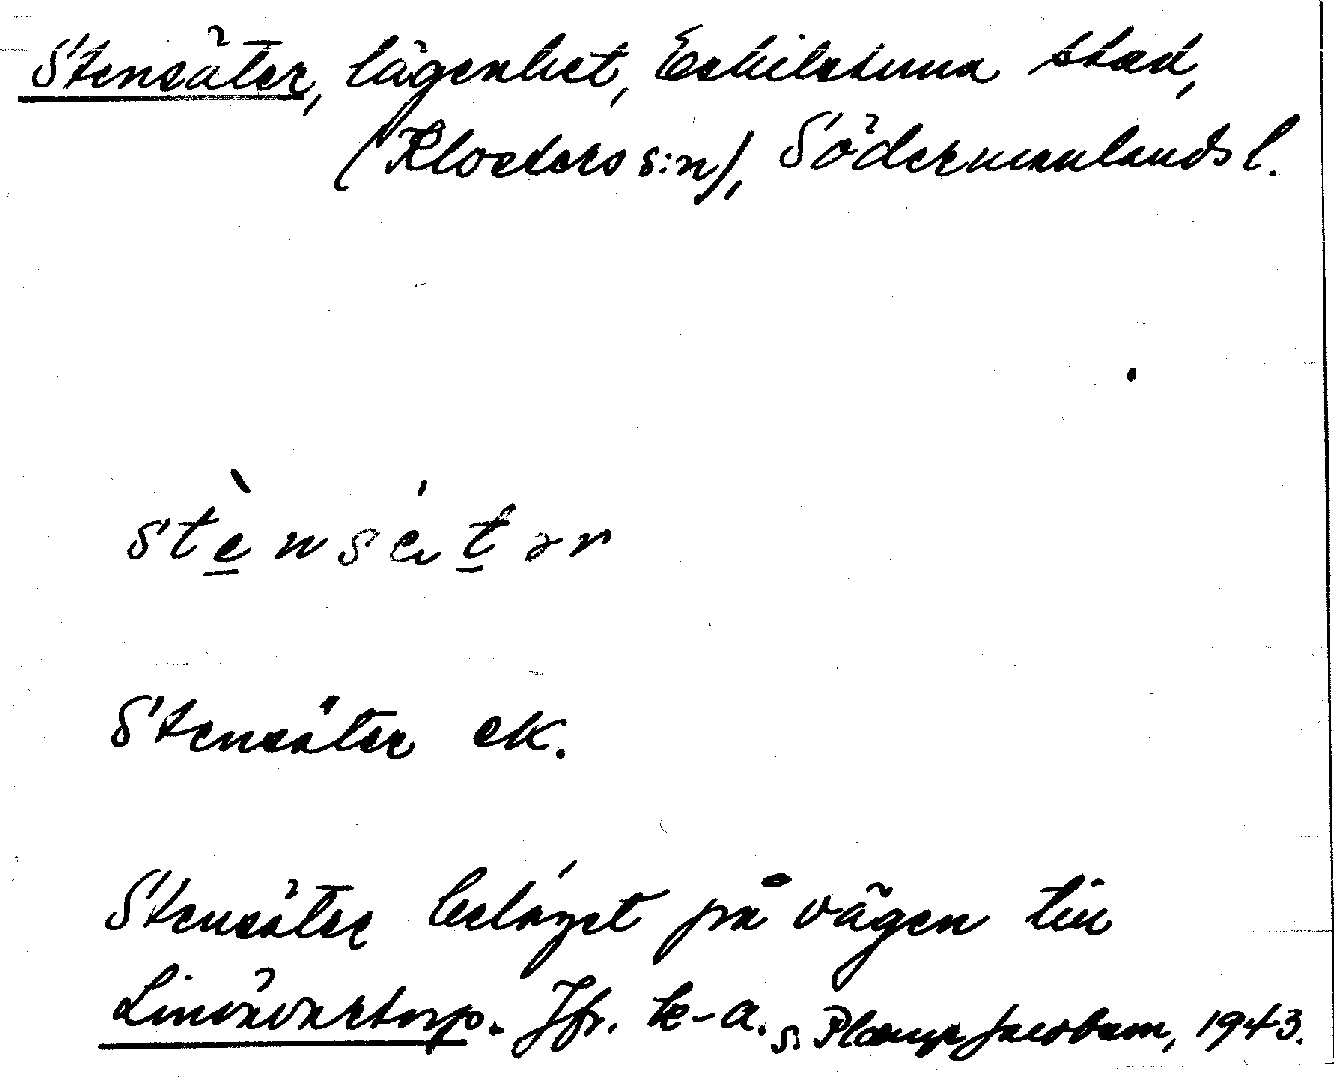 Stensäter, lägenhet, Eskilstuna stad,
(Klosters s:n), Södermanlands l.
stènsätər
Stensäter ek.
Stensäter beläget på vägen till
Linvävartorp. Jfr. k-a. Jacobsson, 1943.